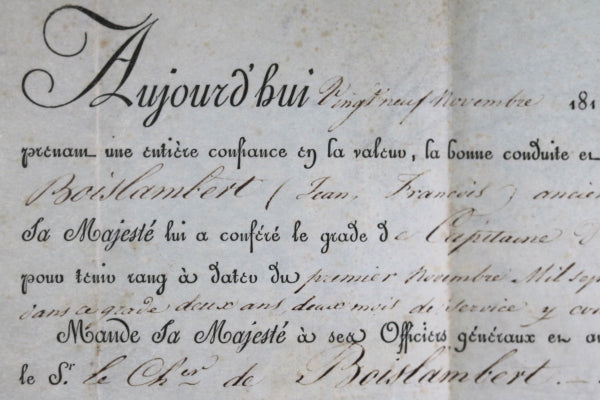 Aujourd'hui Vingt neuf Novembre 181
prenant une entière confiance en la valeur, la bonne conduite et
Boislambert (Jean, François) ancien
Sa Majesté lui a conféré le grade de Capitaine
pour tenir rang à dater du premier Novembre Mil sep
dans ce grade deux ans, deux mois de service y com
Mande Sa Majesté à ses Officiers généraux et au
le Sr. le Cher. de Boislambert.